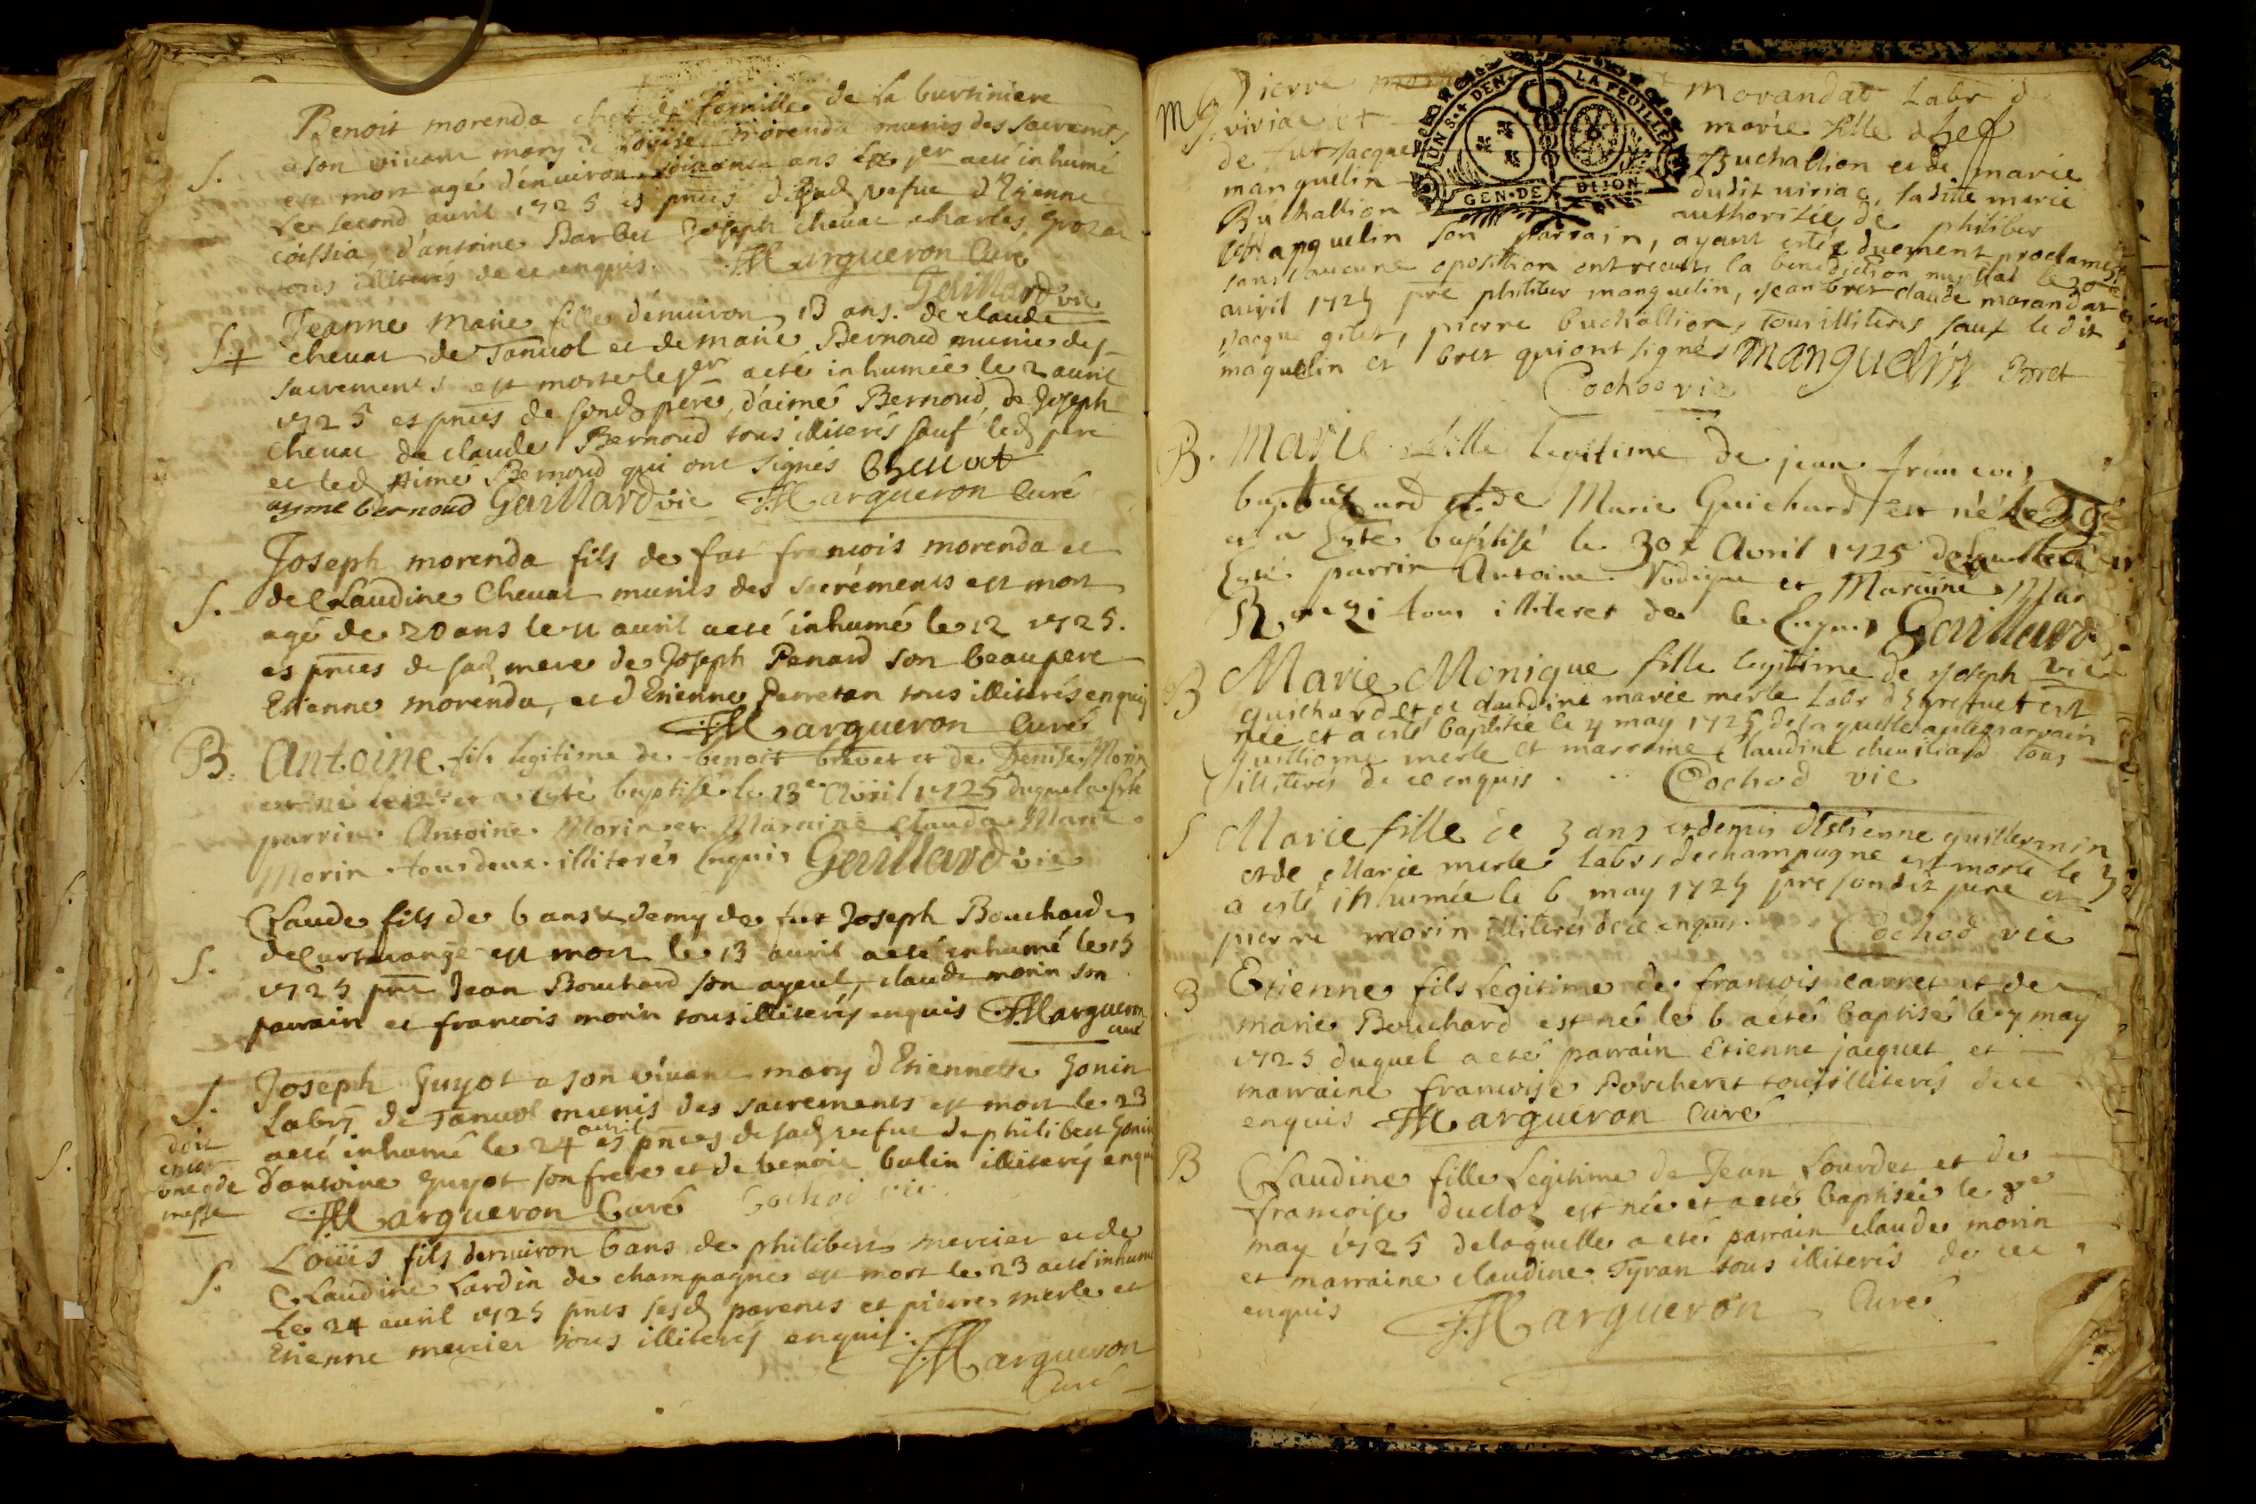 Benoit morenda chef de famille de la burtiniere
S. a son vivant mary de Louise morenda munis des sacremts
est mort agé d'environ soixante ans le per a eté inhumé
le second avril 1725 es pnces de sad vefue d'Etienne
coissia, d'antoine Barbet Joseph chevat charles Grozat
tous illiteres de ce enquis. Margueron Curé
Gaillard vic
S+ Jeanne Marie fille d'environ 13 ans. de claude
chevat de Tanvol et de marie Bernoud munie des
sacrements est morte le per a eté inhumée le 2 avril
1725 es pnces de sond pere, d'aimé Bernoud, de Joseph
chevat de claude Bernoud tous illiterés sauf led pere
et led Aimé Bernoud qui ont signés Chevat
ayme bernoud Gaillard vic Margueron Curé
Joseph morenda fils de fut francois morenda et
S. de Claudine Chevat munis des sacréments est mort
agé de 20 ans le 11 avril a eté inhumé le 12 1725.
es pnces de sad mere de Joseph Penard son beaupere
Etienne morenda, et d'Etienne Perretan tous illiterés enquis
Margueron Curé
B. Antoine fils legitime de benoit brevet et de Denise Morin
est né le 12e et a esté baptisé le 13e Avril 1725 duquel a esté
parrin Antoine Morin et Maraine Clauda Marie
Morin tous deux illiterés Enquis Gaillard vic
Claude fils de 6 ans & demy de fut Joseph Bouchard
S. de Curtmange est mort le 13 avril a eté inhumé le 15
1725 pnt Jean Bouchard son ayeul, claude morin son
parrain et francois morin tous illiterés enquis Margueron
curé
S. Joseph Guyot a son vivant mary d'Etiennette Gonin
Labr de Tanvol munis des sacrements est mort le 23
avril
doit a eté inhumé le 24 es pnces de sad vefue de philibert Gonin
encor
une gde d'antoine Guyot son frere et de benoit bulin illiterés enquis
messe Margueron Curé Cochod vic
Loüis fils d'environ 6 ans de philibert mercier et de
S. Claudine Lardin de champagne est mort le 23 a eté inhumé
Le 24 avril 1725 pnts sesd parents et pierre merle et
Etienne mercier tous illiterés enquis.
Margueron
Curé
UN S. 4 DEN LA FEUILLE
GEN. DE DIJON
M Pierre morandat Labr de
viriac et marie fille de
de fut Jacques Buchallion et de marie
manguelin dudit viriac, laditte marie
Buchallion authorisée de philiber
Manguelin son parrain, ayant esté duement proclamés
sans aucune oposition ont receuts la benediction nuptial le 30e
avril 1725 pre philiber manguelin, jean bret claude morandat et
jacque gilet, pierre buchallion, tous illiteres sauf le dit
maguelin et bret qui ont signés Manguelin Bret
Cochod vic
B. Marie fille legitime de jean francois
et de Marie Guichard est né le 29e
et a Esté baptisé le 30e Avril 1725 de laquelle a
Esté parrin Antoine et Maraine Mar
tous illiteret de ce Enquis Gaillard
vic
B Marie Monique fille legitime de joseph
guichard et de claudine marie merle Labr est
née et a esté baptisée le 4 may 1725 de laquelle a esté parrain
guilliome merle et marraine Claudine chevilliard tous
illiterés de ce enquis. Cochod vic
S Marie fille de 3 ans et demis d'Estienne guillermin
et de Marie merle Labrs de champagne est morte le
a esté inhumée le 6 may 1725 pre sondit pere et
pierre morin illiterés de ce enquis. Cochod vic
B Etienne fils Legitime de francois carret et de
marie Bouchard est né le 6 a eté baptisé le 7 may
1725 duquel a eté parrain Etienne jacquet et
marraine francoise Porcheret tous illiterés de ce
enquis Margueron Curé
B Claudine fille Legitime de Jean Lourdet et de
francoise duclos est née et a eté baptisée le 8e
may 1725 de laquelle a eté parrain claude morin
et marraine claudine Tyran tous illiterés de ce
enquis Margueron Curé